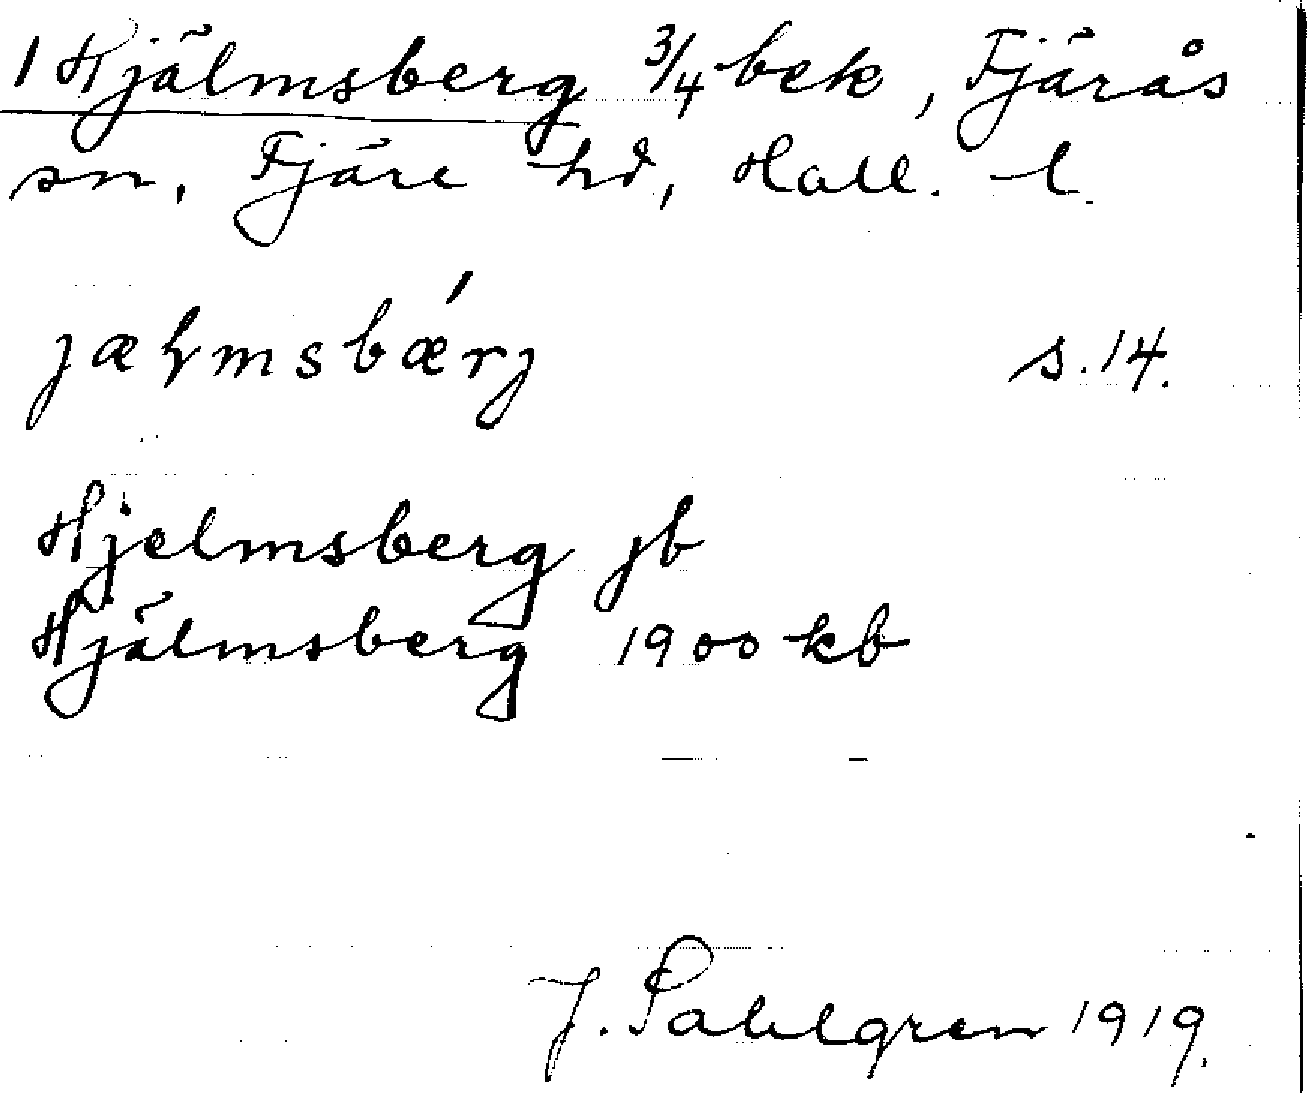 1 Hjälmsberg 3/4 bek, Fjärås
sn, Fjäre hd, Hall. l.
s.14.
Hjelmsberg jb
Hjälmsberg 1900 kb
J. Sahlgren 1919.